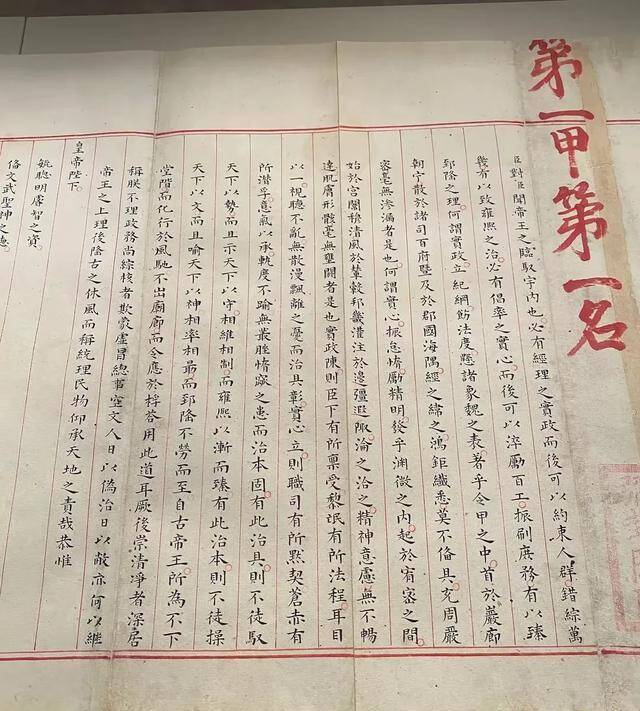 第一甲第一名
臣對臣聞帝王之臨馭宇內也必有經理之實政而後可以約束人群錯綜萬
幾有以致雍熙之治必有倡率之實心而後可以淬勵百工振刷庶務有以臻
郅隆之理何謂實政立紀綱飭法度懸諸象魏之表著乎令甲之中首於巖廊
朝宁散於諸司百府暨及於郡國海隅經之緯之鴻鉅纖悉莫不俻具充周嚴
密毫無滲漏者是也何謂實心振怠惰勵精明發乎淵微之內起於宥密之間
始於宮闈穆清風於輦轂邦畿灌注於邊疆遐陬淪之洽之精神意慮無不暢
達肌膚形骸毫無壅閼者是也實政陳則臣下有所禀受黎氓有所法程耳目
以一視聽不亂無散漫飄離之憂而治具彰實心立則職司有所默契蒼赤有
所潛孚意氣以承軌度不踰無叢脞惰窳之患而治本固有此治具則不徒馭
天下以勢而且示天下以守相維相制而雍熙以漸而臻有此治本則不徒操
天下以文而且喻天下以神相率相勗而郅隆不勞而至自古帝王所為不下
堂階而化行於風馳不出廟廊而令應於桴荅用此道耳厥後崇清凈者深居
稱朕不理政務尚綜核者欺蒙虛冒總事空文人日以偽治日以敝亦何以繼
帝王之上理後隆古之休風而稱統理民物仰承天地之責哉恭惟
皇帝陛下
毓聰明睿智之資
俻文武聖神之德